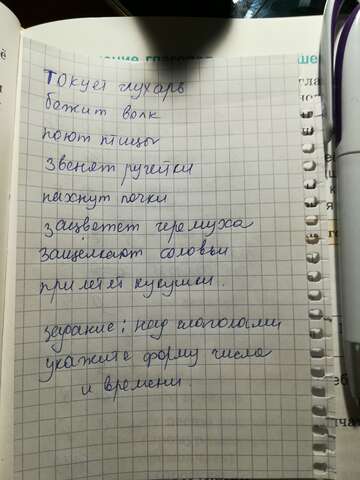 Токует глухарь
бежит волк
поют птицы
звенят ручейки
пахнут почки
зацветет черемуха
защелкают соловьи
прилетят кукушки.
задание: над глаголами
укажите форму числа
и времени.